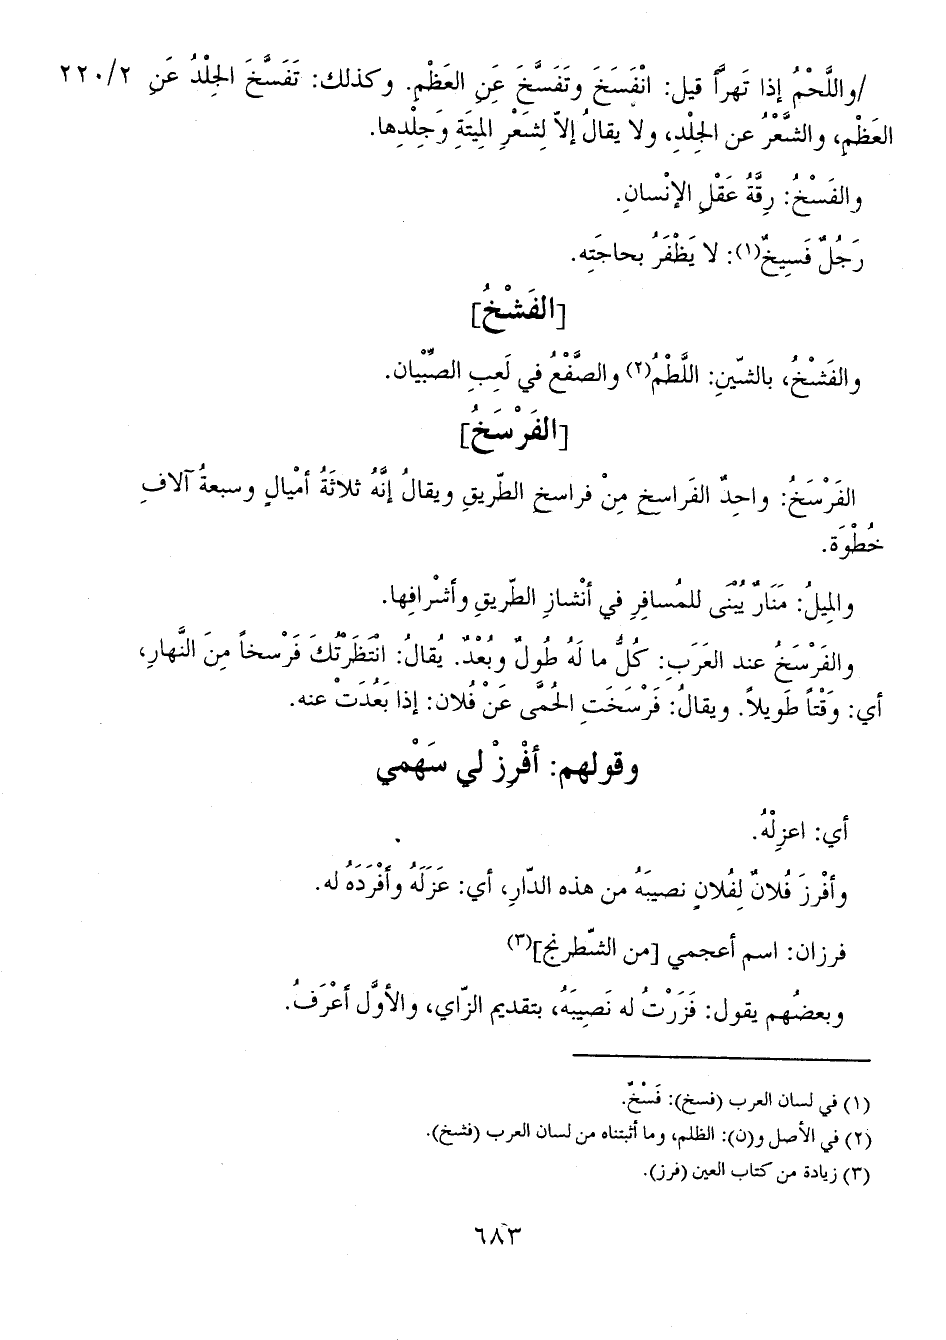 /واللَّحْمُ إذا تَهرَّأَ قيل: انْفَسَخَ وتَفَسَّخَ عَنِ العَظْمِ. وكذلك: تَفَسَّخَ الجِلْدُ عَنِ ٢٢٠/٢
العَظْمِ، والشَّعْرُ عن الجِلْدِ، ولا يقالُ إلاّ لِشَعْرِ المِيتَةِ وَجِلْدِها.
والفَسْخُ: رِقَّةُ عَقْلِ الإنْسانِ.
رَجُلٌ فَسِيخٌ(١): لا يَظْفَرُ بحاجَتِه.
[الفَشْخُ]
والفَشْخُ، بالشّينِ: اللَّطْمُ(٢) والصَّفْعُ في لَعِبِ الصِّبْيان.
[الفَرْسَخُ]
الفَرْسَخُ: واحِدٌ الفَراسخِ مِنْ فراسخِ الطّريقِ ويقالُ إنَّهُ ثلاثَةُ أمْيالٍ وسبعةُ آلافِ
خُطْوَة.
والمِيلُ: مَنَارٌ يُبْنَى للمُسافِرِ في أنْشازِ الطّريقِ وأشْرافِها.
والفَرْسَخُ عند العَرَبِ: كُلُّ ما لَهُ طُولٌ وبُعْدٌ. يُقالُ: انْتَظَرْتُكَ فَرْسخاً مِنَ النَّهارِ،
أي: وَقْتاً طَويلاً. ويقالُ: فَرْسَخَتِ الحُمَّى عَنْ فُلان: إذا بَعُدَتْ عنه.
وقولهم: أفْرِزْ لي سَهْمي
أي: اعزِلْهُ.
وأفْرزَ فُلانٌ لِفُلانٍ نصيبَهُ من هذه الدّارِ، أي: عَزَلَهُ وأفْرَدَهُ له.
فرزان: اسم أعجمي [من الشّطرنج](٣)
وبعضُهم يقول: فَزَرْتُ له نَصِيبَهُ، بتقديم الزّاي، والأوَّل أعْرَفُ.
(١) في لسان العرب (فسخ): فَسْخٌ.
(٢) في الأصل و(ن): الظلم، وما أثبتناه من لسان العرب (فشخ).
(٣) زيادة من كتاب العين (فرز).
٦٨٣